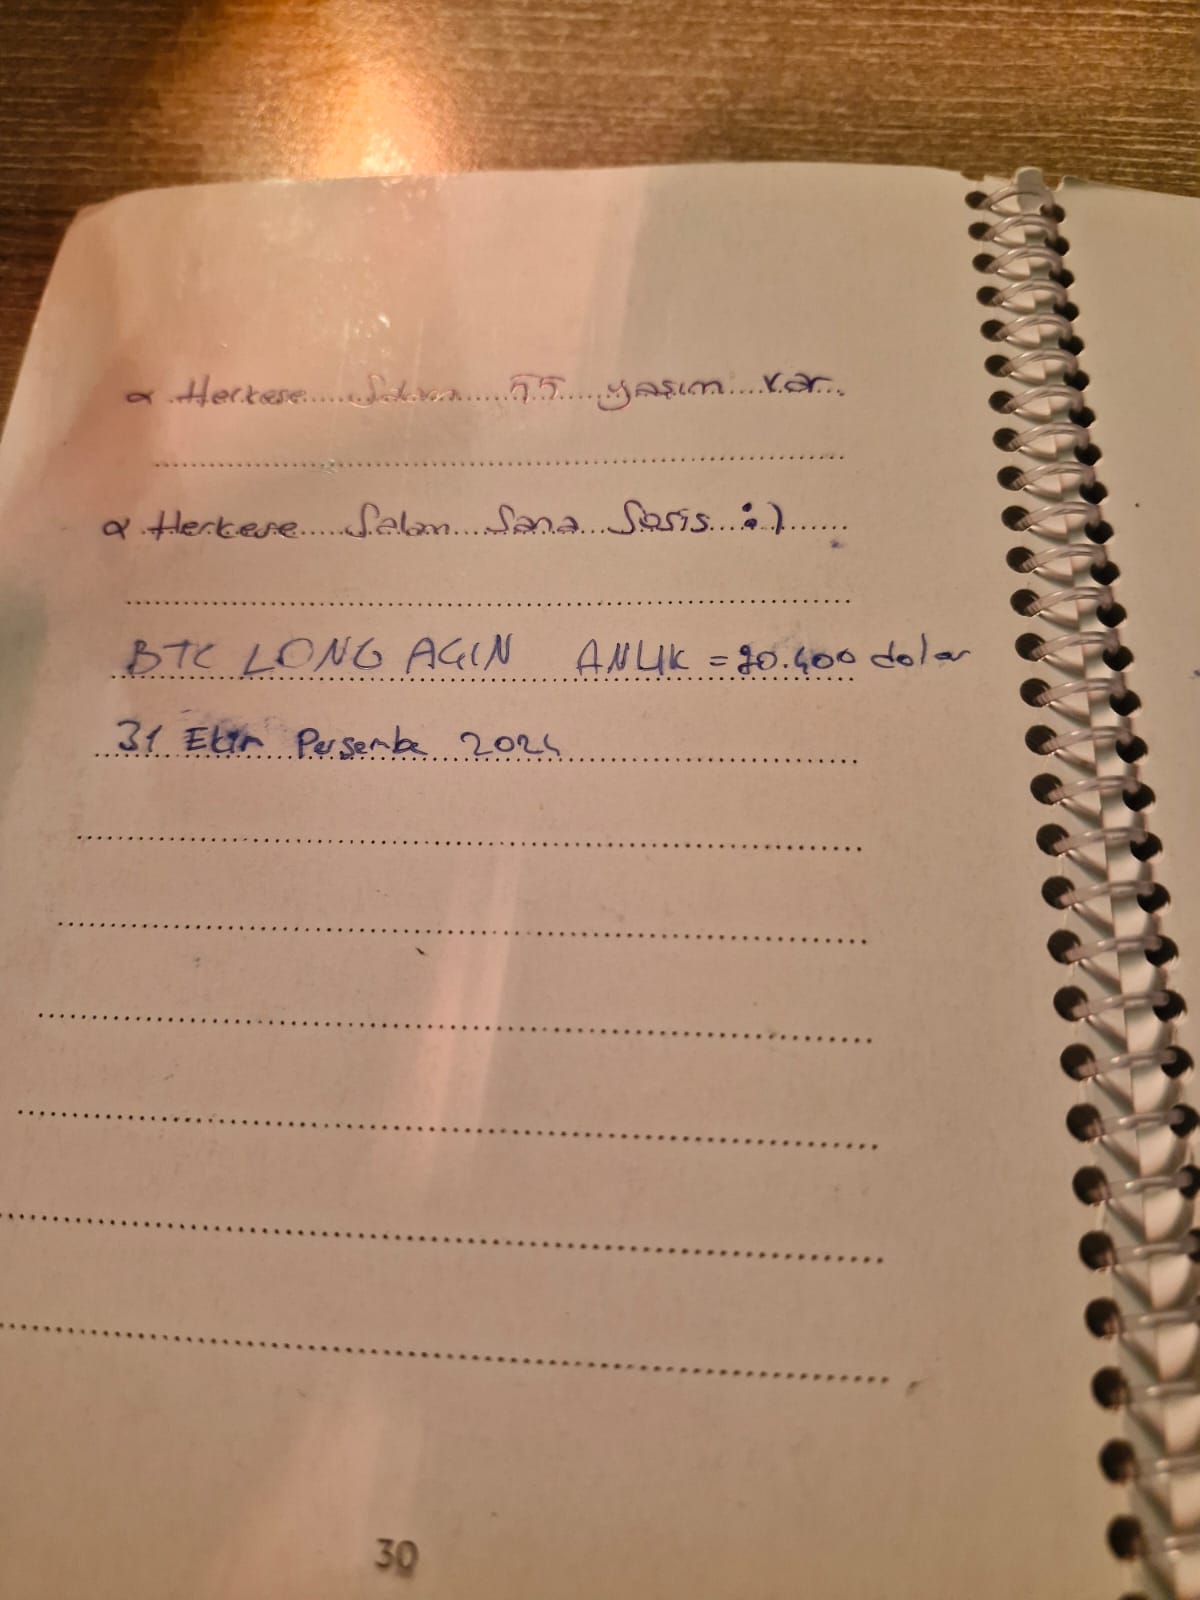 α Herkese Selam 55 yaşım var.
α Herkese Selam Sana Sosis :)
BTC LONG AÇIN ANLIK = 70.400 dolar
31 Ekim Perşembe 2024
30